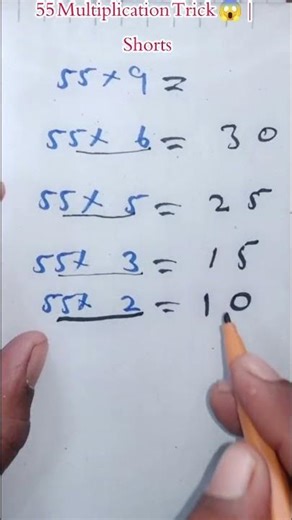 55 Multiplication Trick 😱 |
Shorts
55 × 9 =
55 × 6 = 3 0
55 × 5 = 2 5
55 × 3 = 1 5
55 × 2 = 1 0